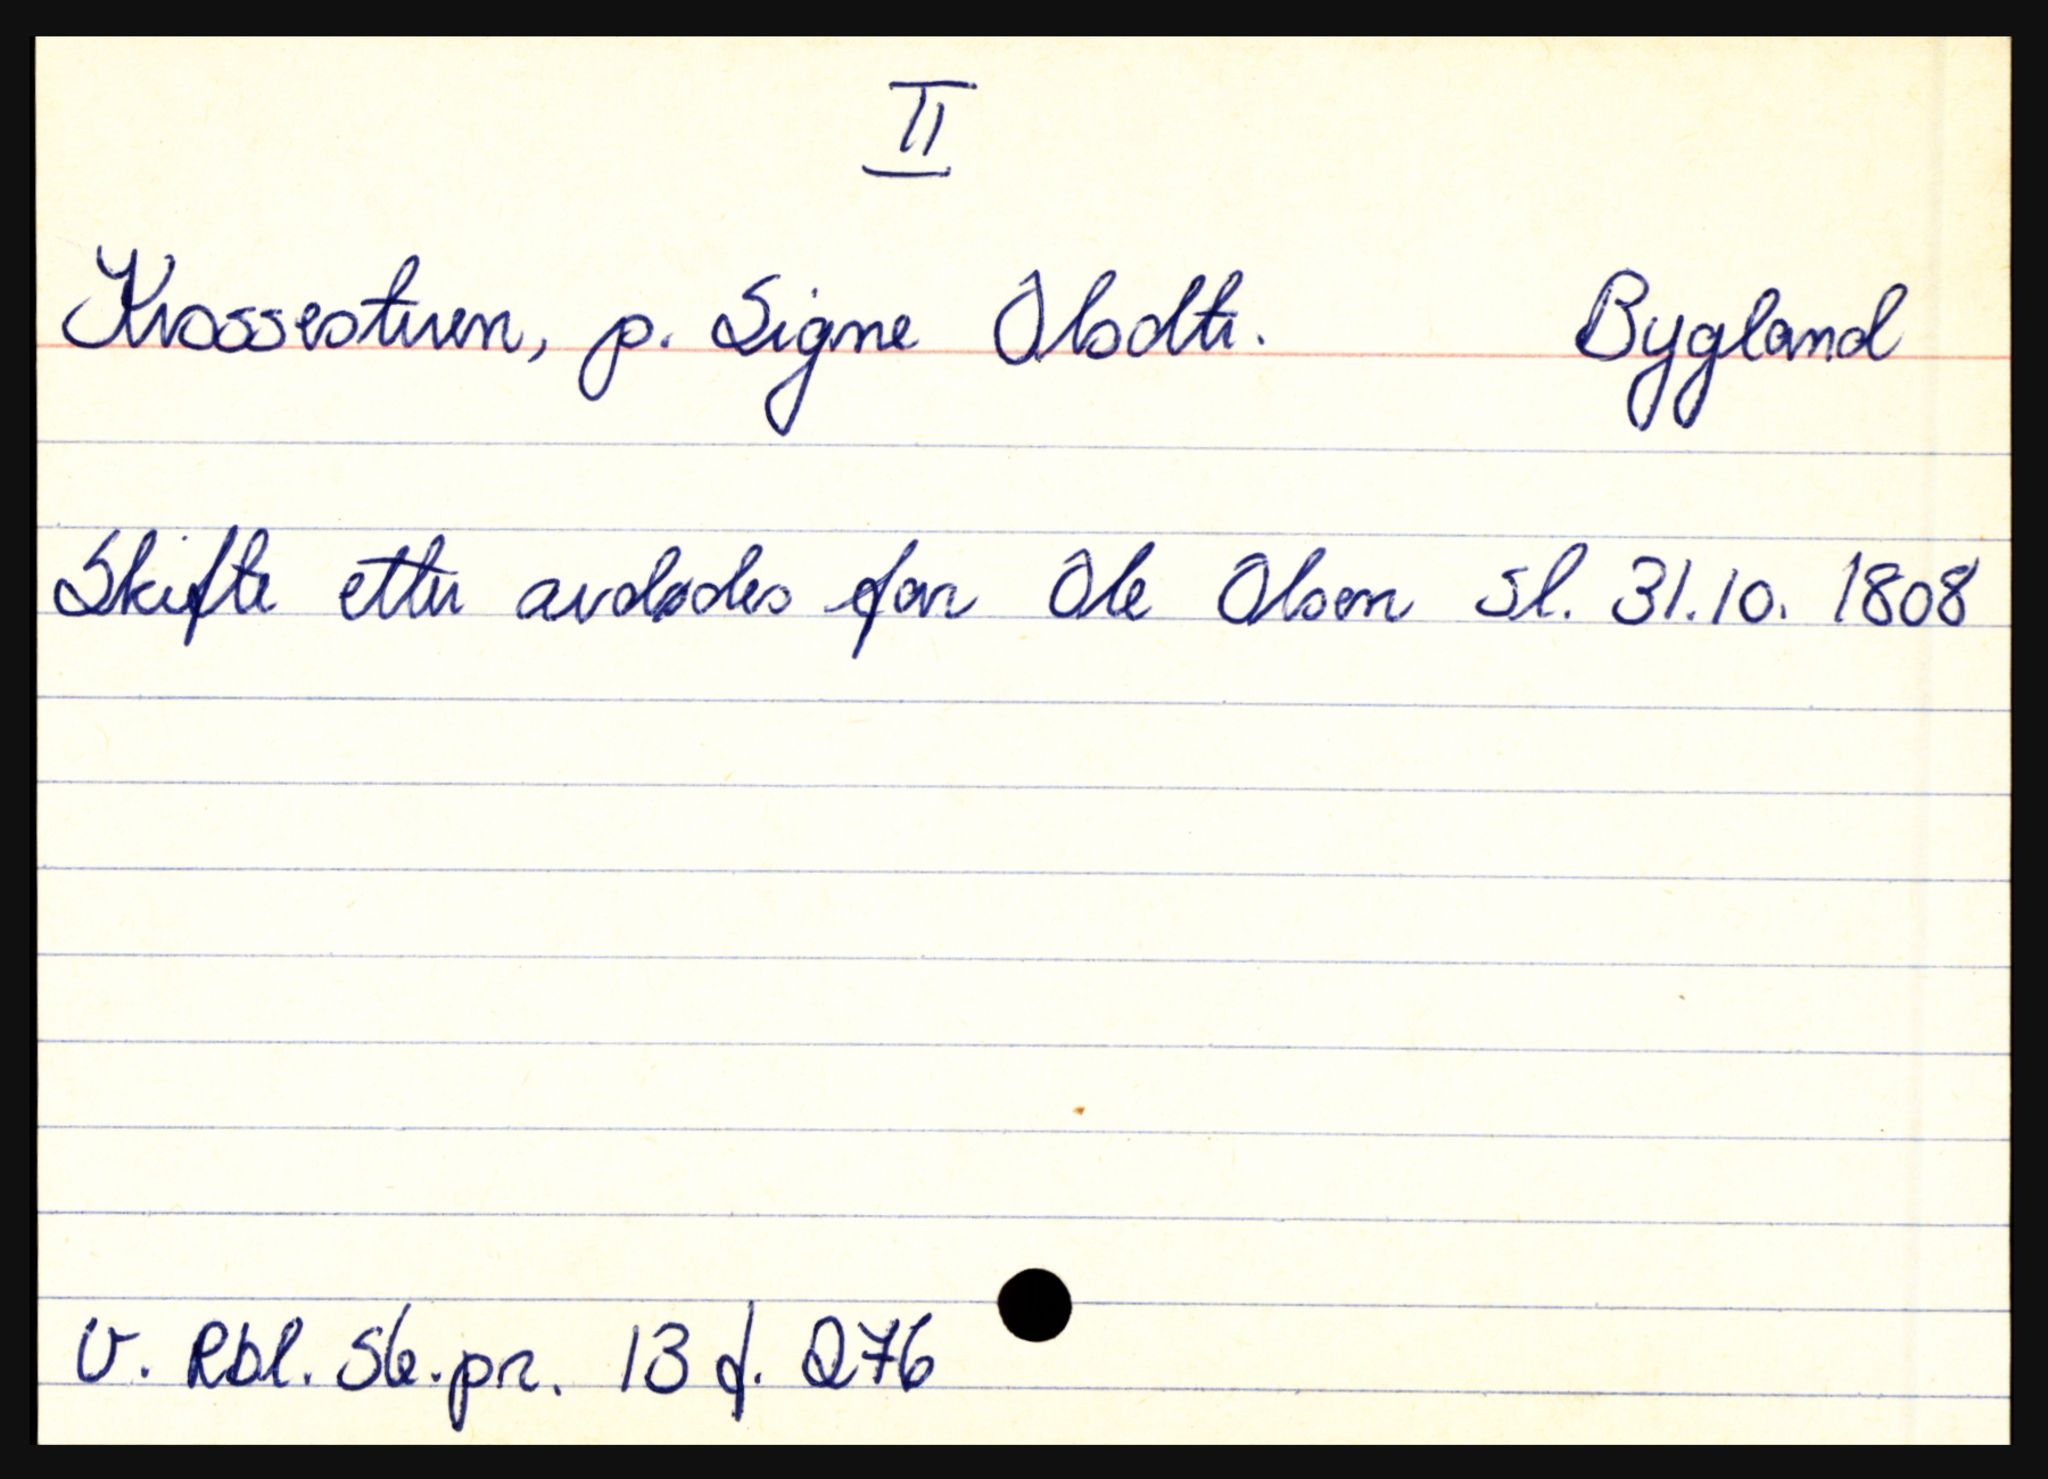 II
Krossestuen, p. Signe Olsdtr. Bygland
Skifte etter avdødes far Ole Olsen sl. 31.10. 1808
V. Rbl. Sk.pr. 13 f. 276